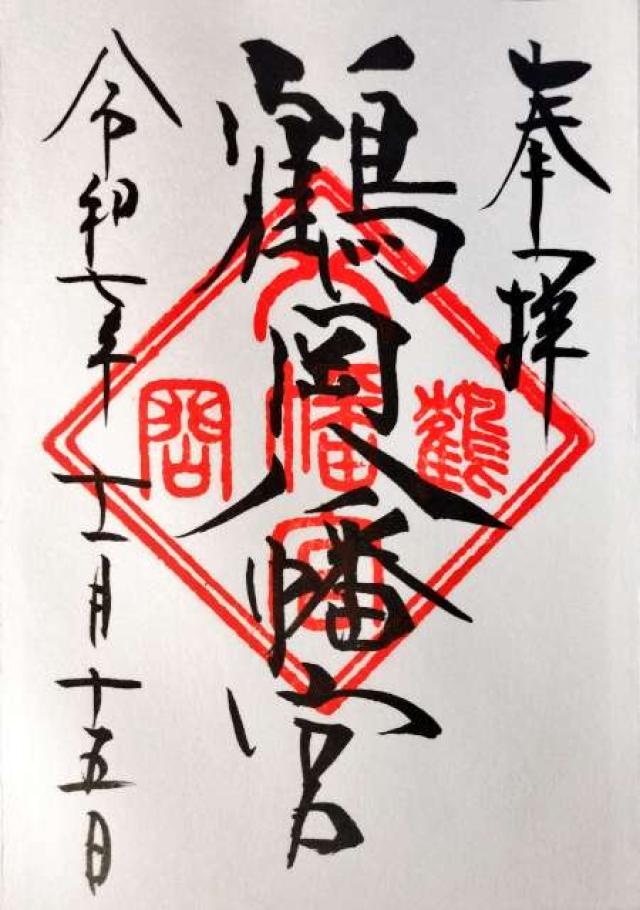 奉拝
鶴岡八幡宮
鶴
岡
八
幡
宮
令和七年十一月十五日